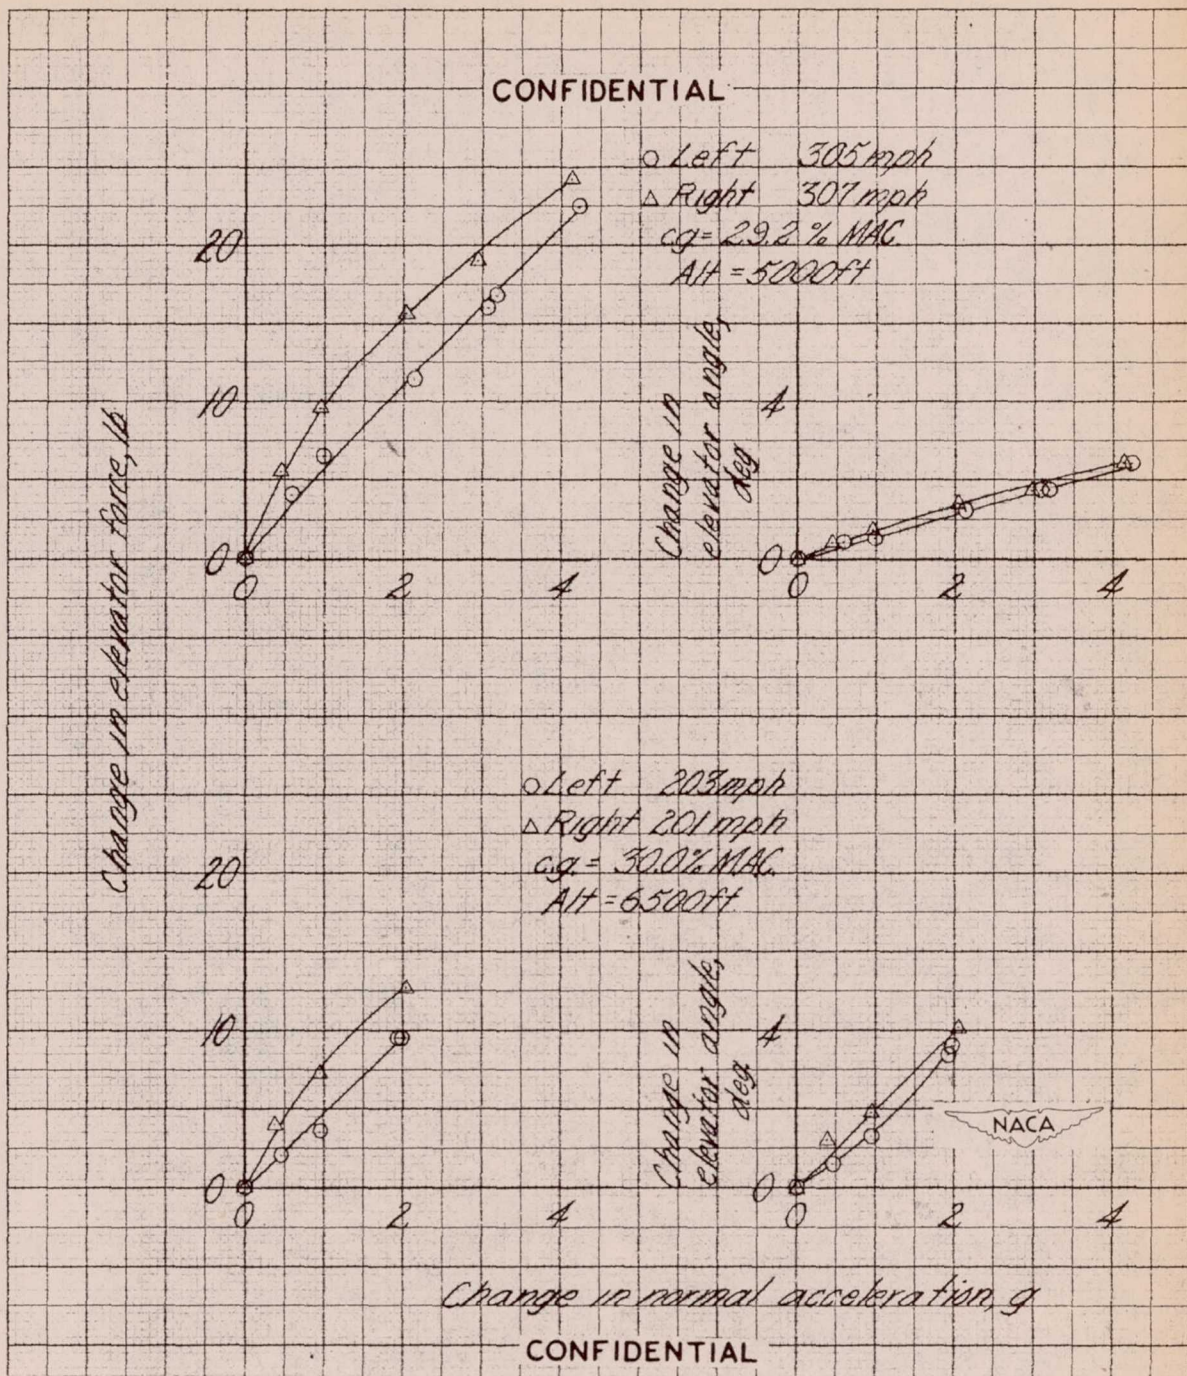 CONFIDENTIAL
○ Left 305 mph
△ Right 307 mph
cg = 29.2 % MAC.
Alt = 5000 ft
Change in elevator force, lb
20
10
0
0 2 4
Change in
elevator angle,
deg
4
0
0 2 4
○ Left 203 mph
△ Right 201 mph
c.g. = 30.0% MAC.
Alt = 6500 ft
20
10
0
0 2 4
Change in
elevator angle,
deg
4
0
0 2 4
NACA
Change in normal acceleration, g
CONFIDENTIAL